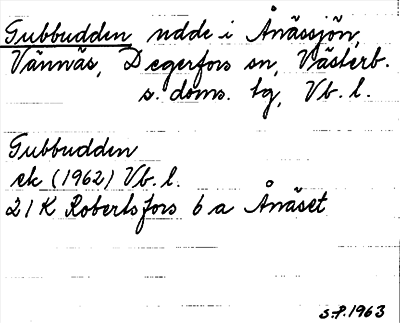 Gubbudden udde i Ånässjön,
Vännäs, Degerfors sn, Västerb.
s. doms. tg, Vb. l.
Gubbudden
ek (1962) Vb. l.
21 K Robertsfors 6 a Ånäset
S.P. 1963